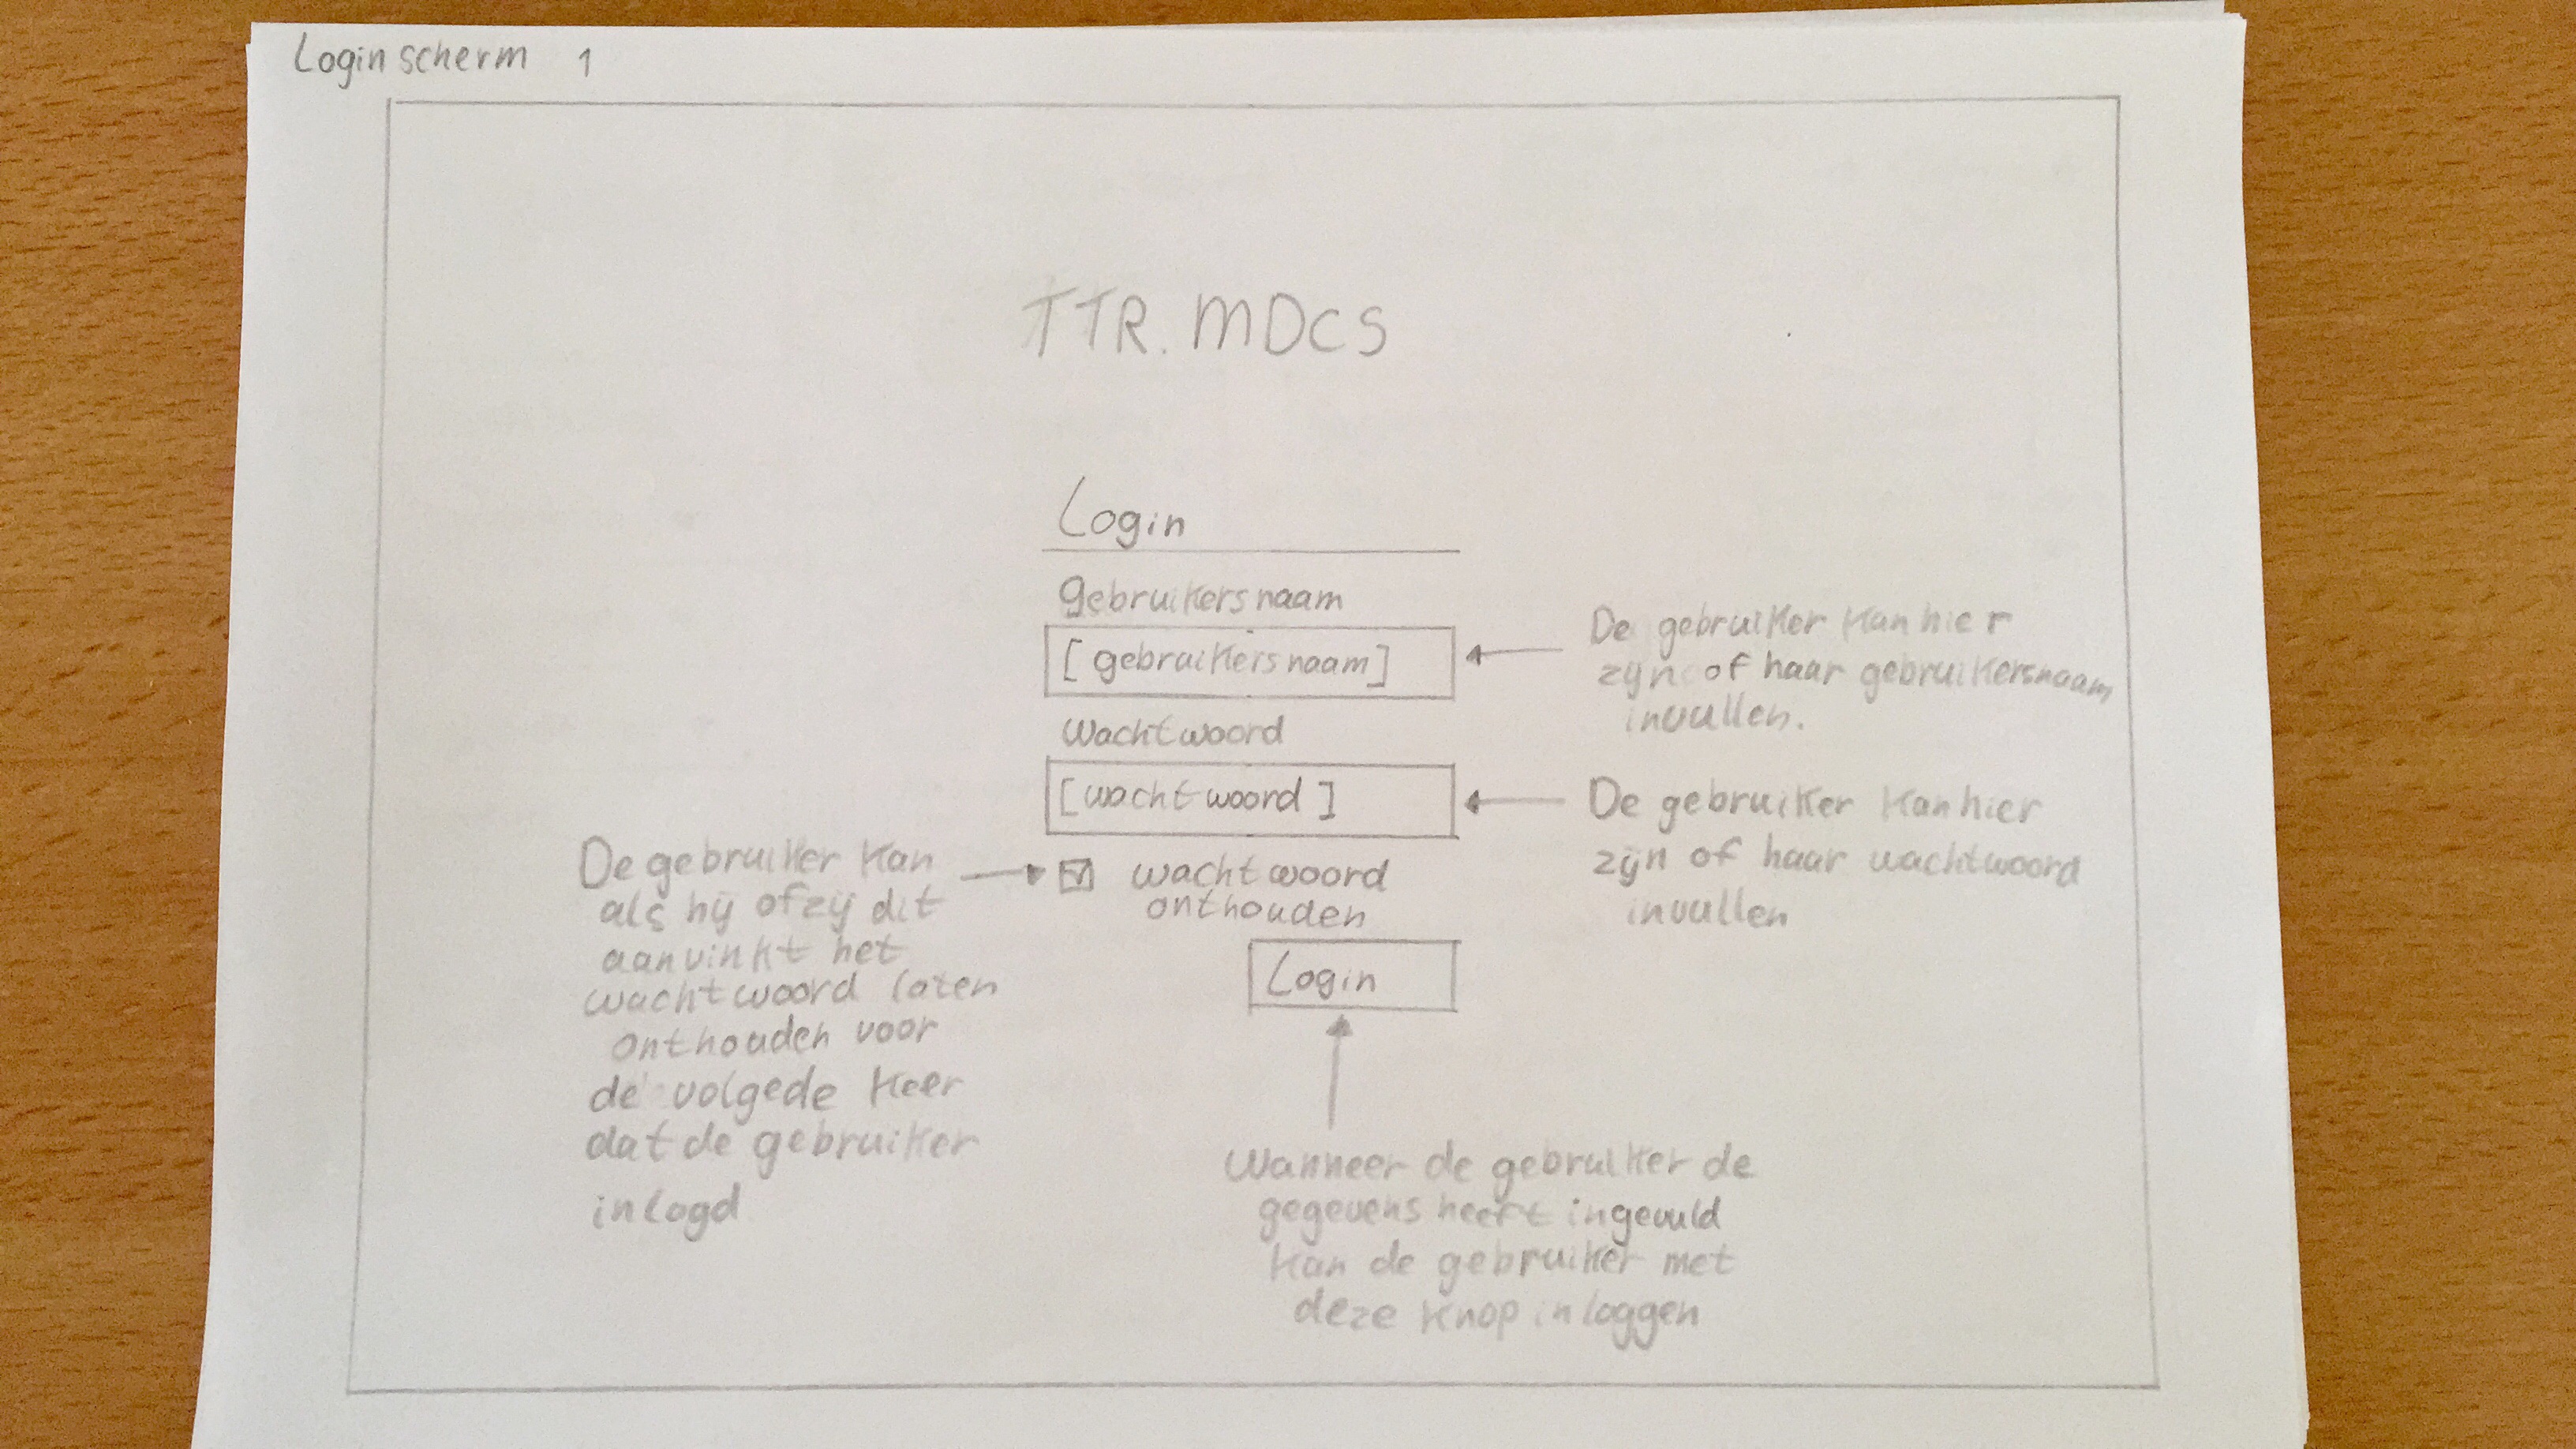 Login scherm 1
TTR. MDCS
Login
gebruikersnaam
[gebruikersnaam]
De gebruiker kan hier
zijn of haar gebruikersnaam
invullen.
wachtwoord
[wachtwoord]
De gebruiker kan hier
zijn of haar wachtwoord
invullen
De gebruiker kan
als hij of zij dit
aanvinkt het
wachtwoord laten
onthouden voor
de volgede keer
dat de gebruiker
inlogd
wachtwoord
onthouden
Login
Wanneer de gebruiker de
gegevens heeft ingevuld
kan de gebruiker met
deze knop inloggen